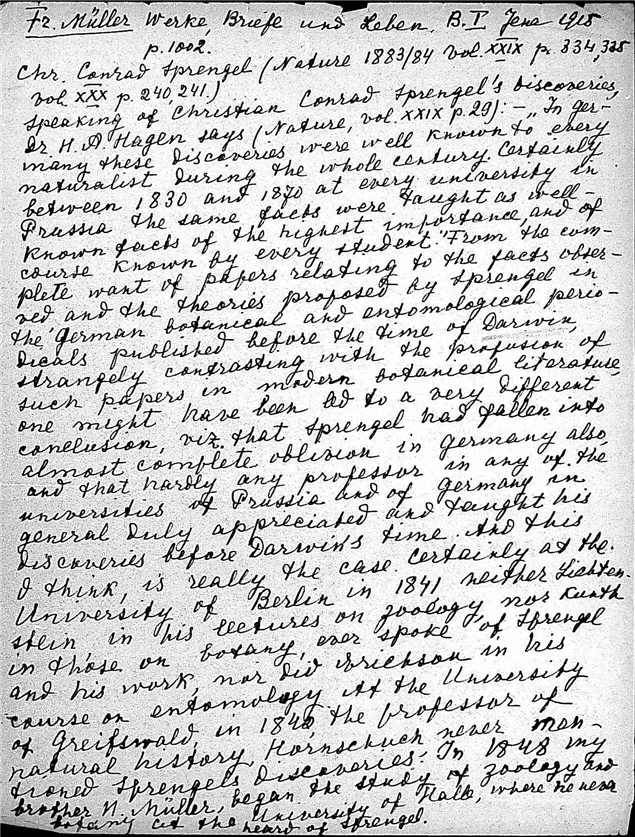 Fr. Müller Werke, Briefe und Leben. B. I Jena 1915
p. 1002.
Chr. Conrad Sprengel (Nature 1883/84 vol. XXIX p. 334, 335
vol. XXX p. 240, 241.)
Speaking of Christian Conrad Sprengel's discoveries,
Dr. H. A. Hagen says (Nature, vol. XXIX p. 29): — „In Ger-
many these discoveries were well known to every
naturalist during the whole century. Certainly
between 1830 and 1870 at every university in
Prussia the same facts were taught as well-
known facts of the highest importance, and of
course known by every student." From the com-
plete want of papers relating to the facts obser-
ved and the theories proposed by Sprengel in
the German botanical and entomological perio-
dicals published before the time of Darwin,
strangely contrasting with the profusion of
such papers in modern botanical literature,
one might have been led to a very different
conclusion, viz. that Sprengel had fallen into
almost complete oblivion in Germany also,
and that hardly any professor in any of the
universities of Prussia and of Germany in
general duly appreciated and taught his
discoveries before Darwin's time. And this
I think, is really the case. Certainly at the
University of Berlin in 1841 neither Lichten-
stein, in his lectures on zoology nor Kunth
in those on botany, ever spoke of Sprengel
and his work, nor did Erichson in his
course on entomology. At the University
of Greifswald, in 1842 the professor of
natural history, Hornschuch never men-
tioned Sprengels discoveries. In 1848 my
brother H. Müller, began the study of zoology and
botany at the University of Halle, where he never
heard of Sprengel.